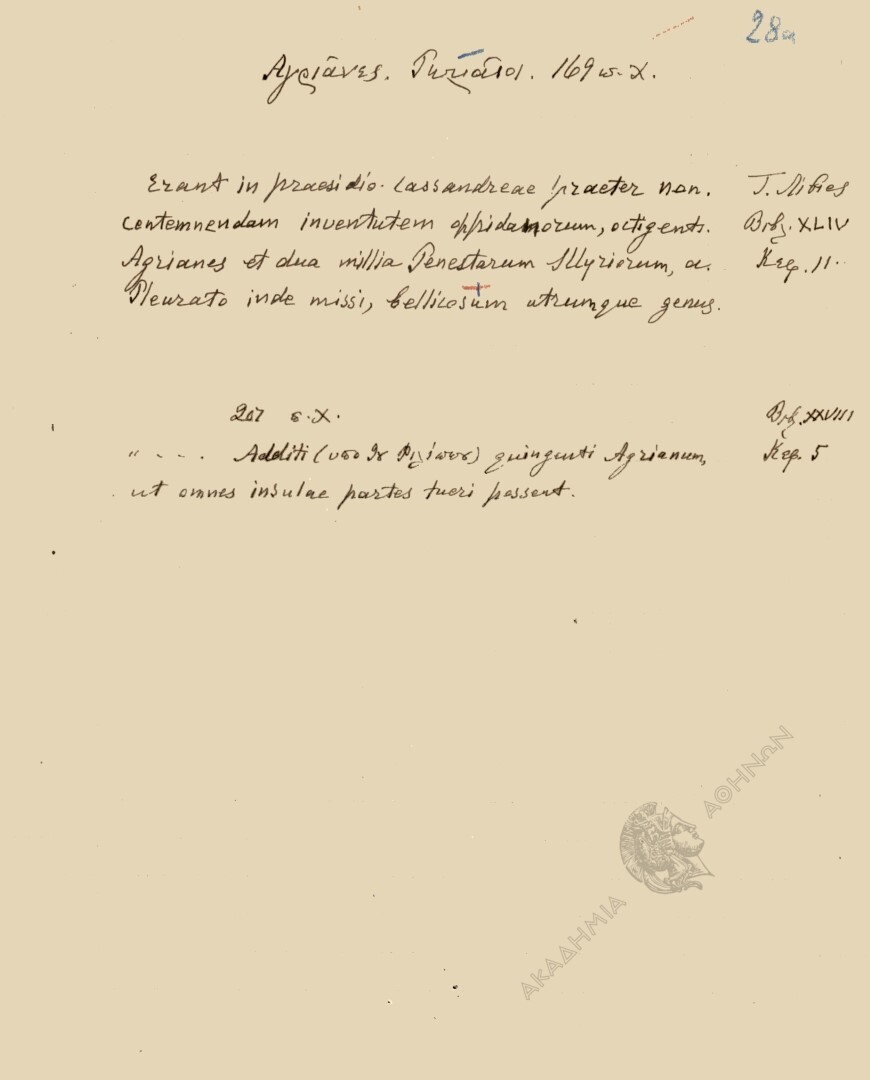 28α
Αγριᾶνες. 169 π.Χ.
Erant in praesidio Cassandreae praeter non.
contemnendam inventutem oppidanorum, octigenti.
Agrianes et dua millia Penestarum Illyriorum, a.
Pleurato inde missi, bellicosum utrumque genus.
Τ. Λίβιος
Βιβλ. XLIV
Κεφ. 11.
207 π.Χ.
" - - - Additi (υπο Φιλίππου) quingenti Agrianum,
ut omnes insulae partes tueri possent.
Βιβλ. XXVIII
Κεφ. 5
ΑΚΑΔΗΜΙΑ ΑΘΗΝΩΝ